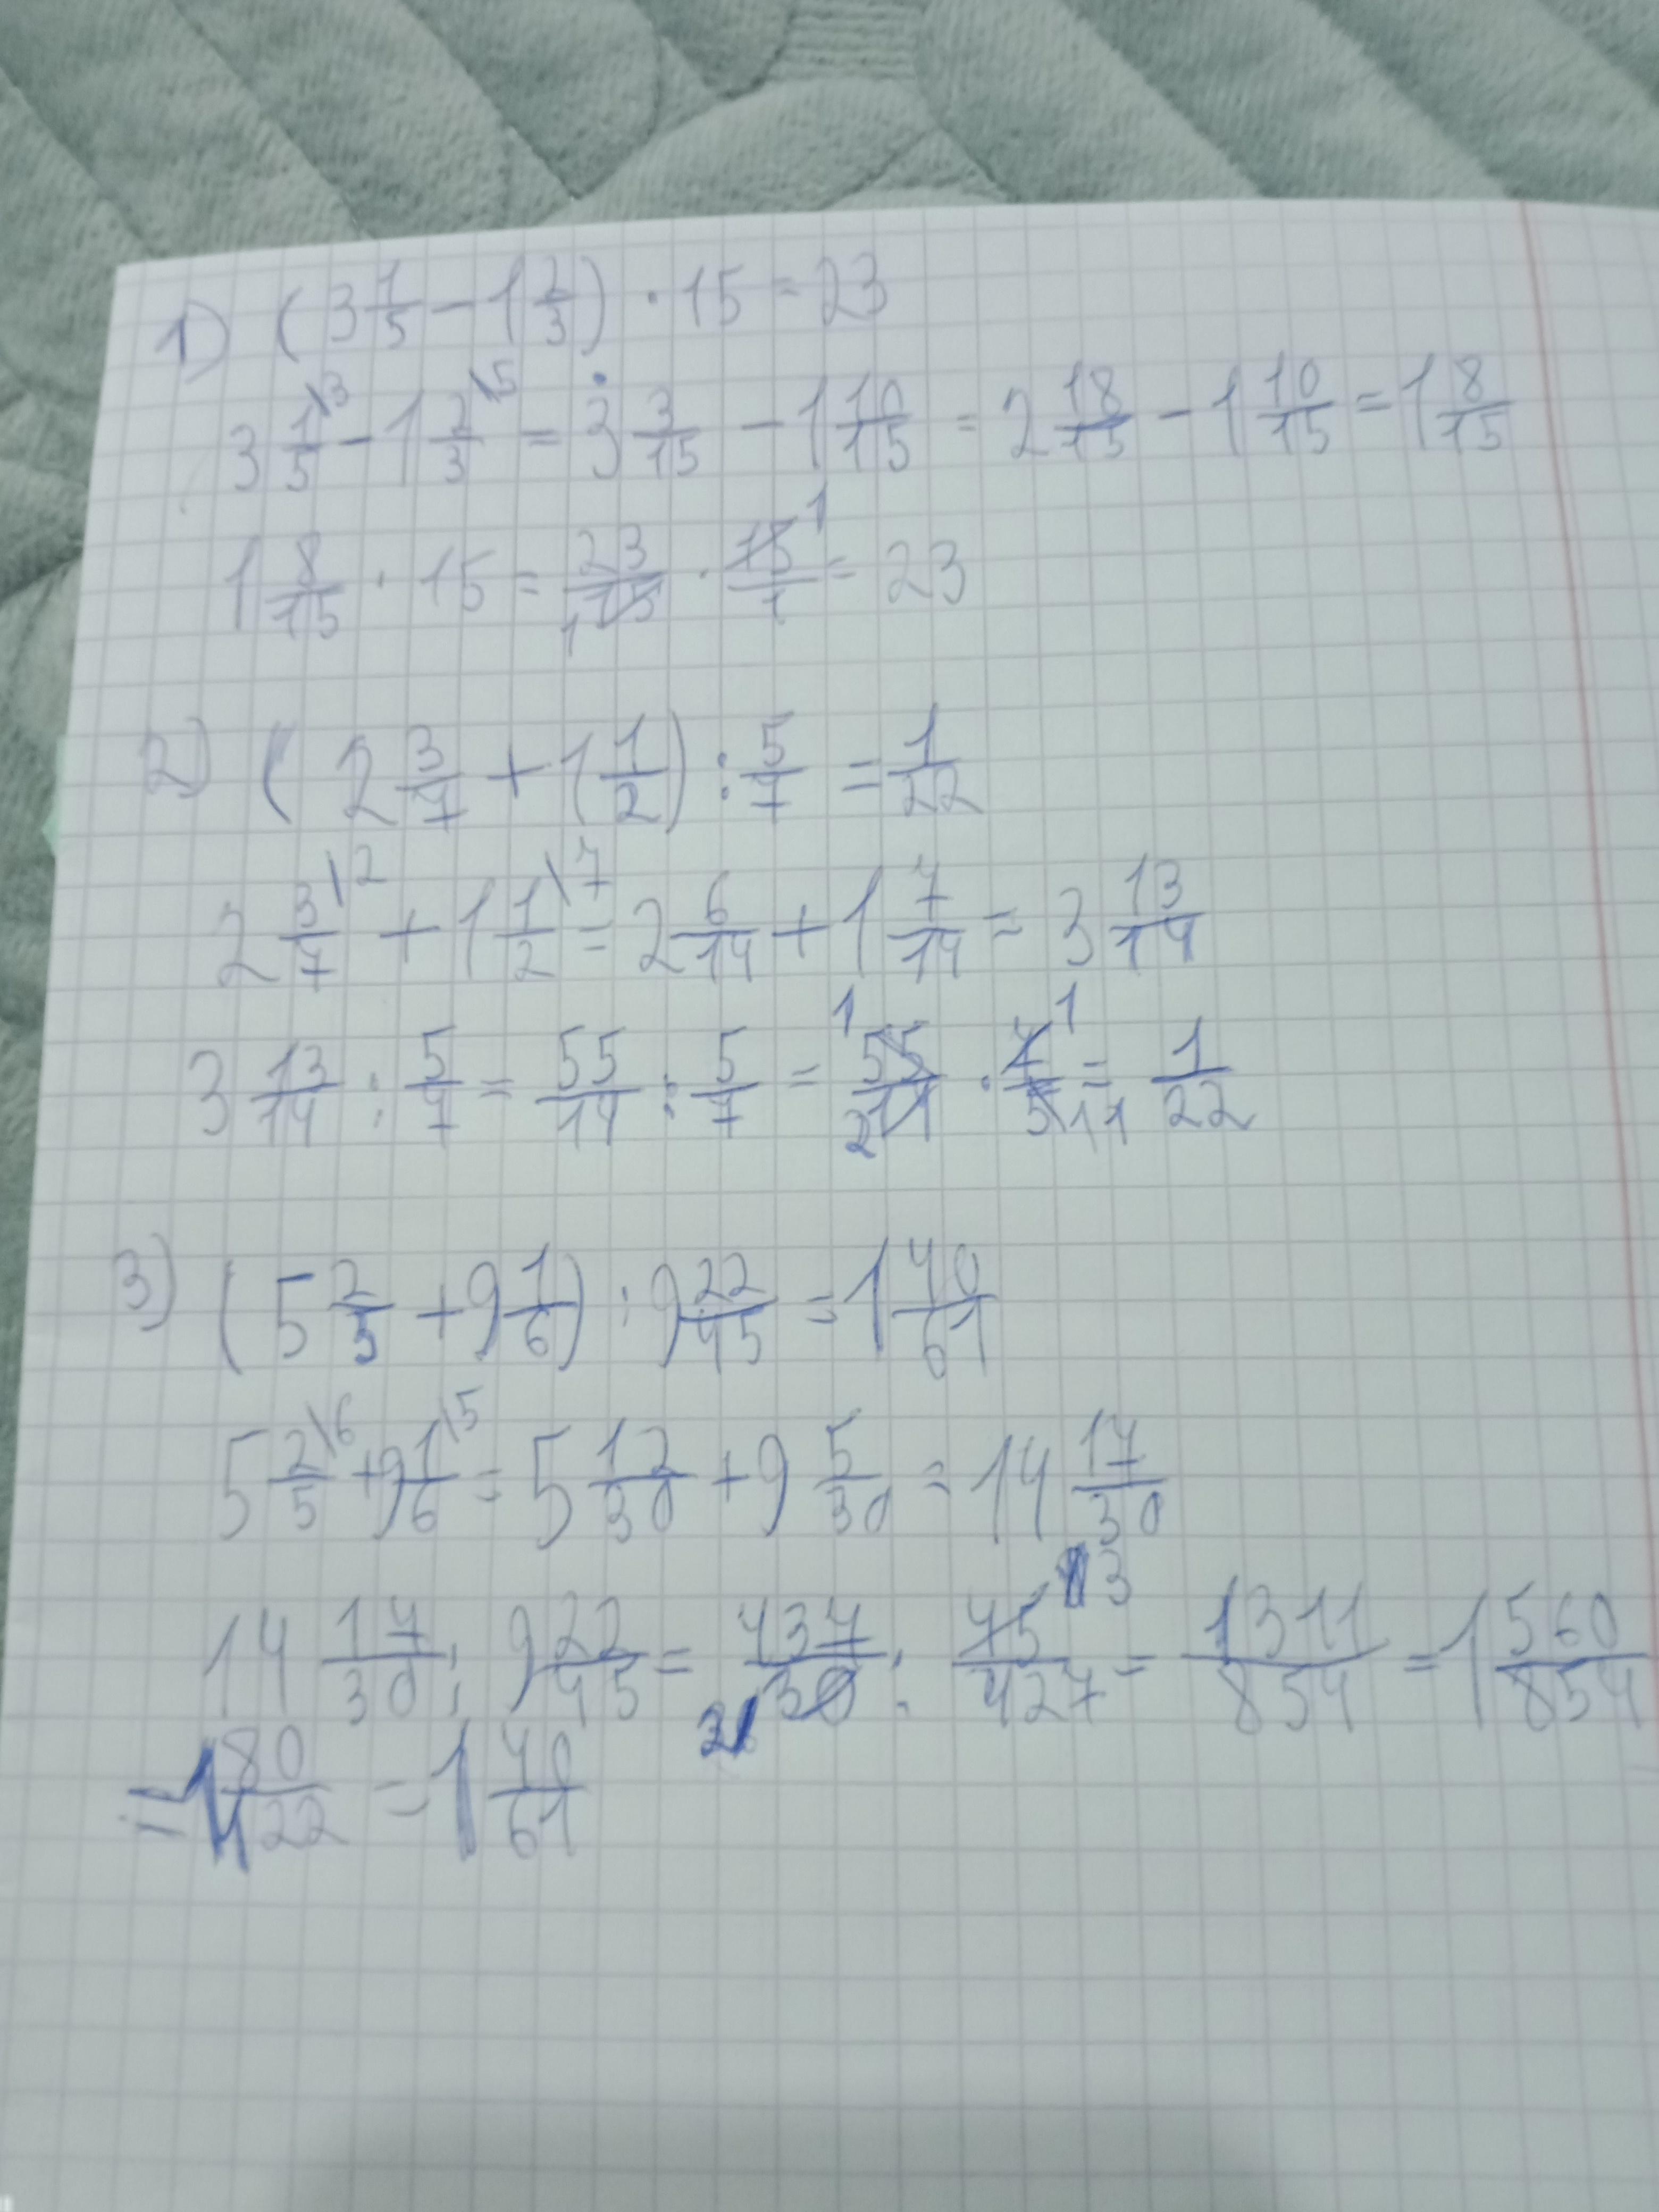 1) (3 1/5 - 1 2/3) · 15 = 23
3 1/5 \3 - 1 2/3 \5 = 3 3/15 - 1 10/15 = 2 18/15 - 1 10/15 = 1 8/15
1 8/15 · 15 = 23/15 1 · 15/1 1 = 23
2) (2 3/7 + 1 1/2) : 5/7 = 1/22
2 3/7 \2 + 1 1/2 \7 = 2 6/14 + 1 7/14 = 3 13/14
3 13/14 : 5/7 = 55/14 : 5/7 = 1 55/14 2 · 7/5 1 11 = 1/22
3) (5 2/5 + 9 1/6) : 9 22/45 = 1 40/61
5 2/5 \6 + 9 1/6 \5 = 5 12/30 + 9 5/30 = 14 17/30
14 17/30 : 9 22/45 = 437/30 2 : 45/427 3 = 1311/854 = 1 560/854
= 1 80/122 = 1 40/61